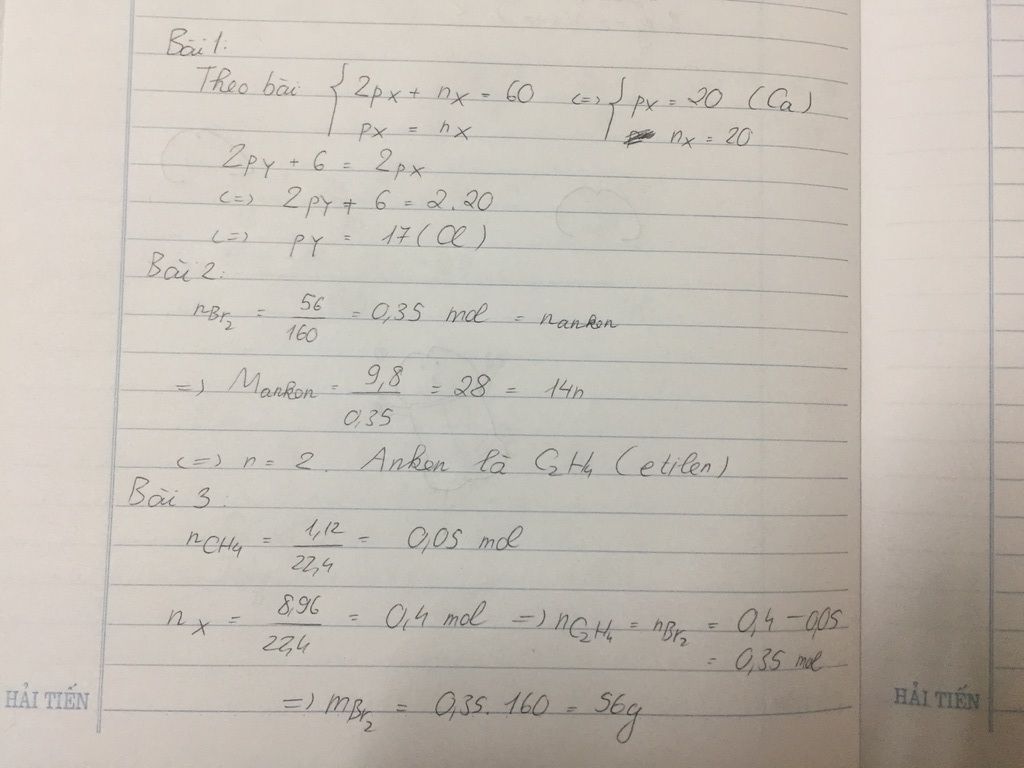 Bài 1:
Theo bài { 2pX + nX = 60 <=> { pX = 20 (Ca)
pX = nX nX = 20
2pY + 6 = 2pX
<=> 2pY + 6 = 2.20
<=> pY = 17 (Cl)
Bài 2:
nBr2 = 56/160 = 0,35 mol = nanken
=> Manken = 9,8/0,35 = 28 = 14n
<=> n = 2. Anken là C2H4 (etilen)
Bài 3:
nCH4 = 1,12/22,4 = 0,05 mol
nX = 8,96/22,4 = 0,4 mol => nC2H4 = nBr2 = 0,4 - 0,05
= 0,35 mol
=> mBr2 = 0,35.160 = 56g
HẢI TIẾN
HẢI TIẾN